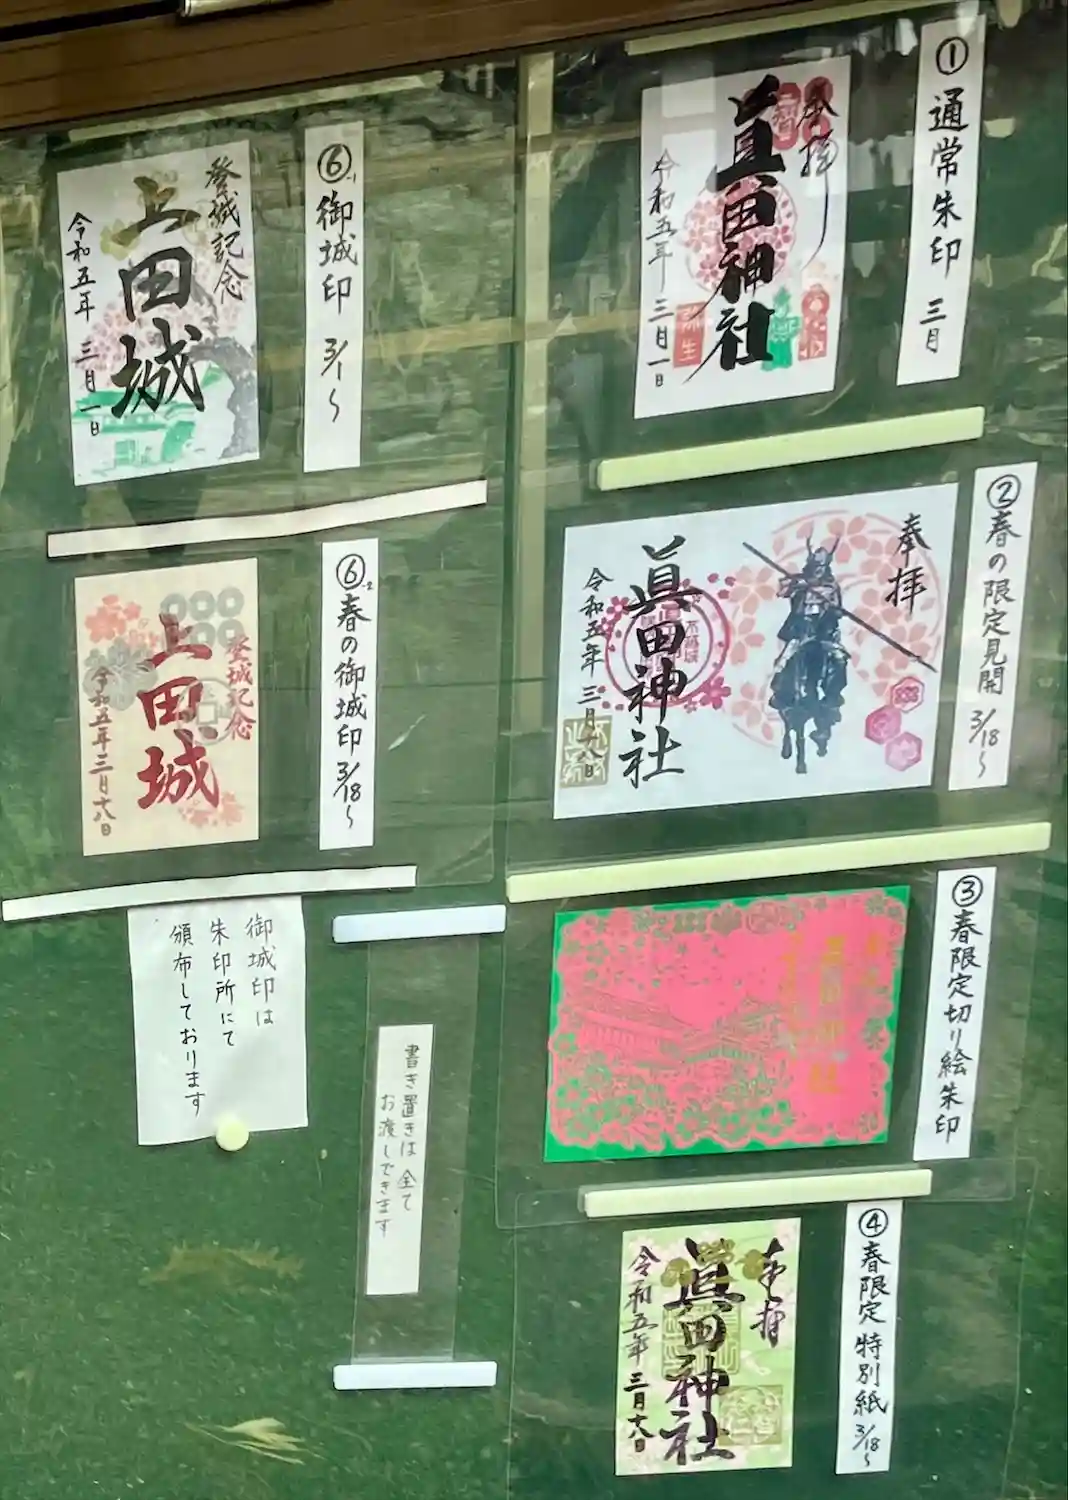 ① 通常朱印 三月
奉拝
眞田神社
令和五年 三月一日
弥生
② 春の限定見開 3/18〜
奉拝
眞田神社
令和五年 三月十八日
③ 春限定切り絵朱印
④ 春限定 特別紙 3/18〜
奉拝
眞田神社
令和五年 三月十八日
⑥-1 御城印 3/1〜
登城記念
上田城
令和五年 三月一日
⑥-2 春の御城印 3/18〜
登城記念
上田城
令和五年三月十八日
御城印は
朱印所にて
頒布しております
書き置きは 全て
お渡しできます